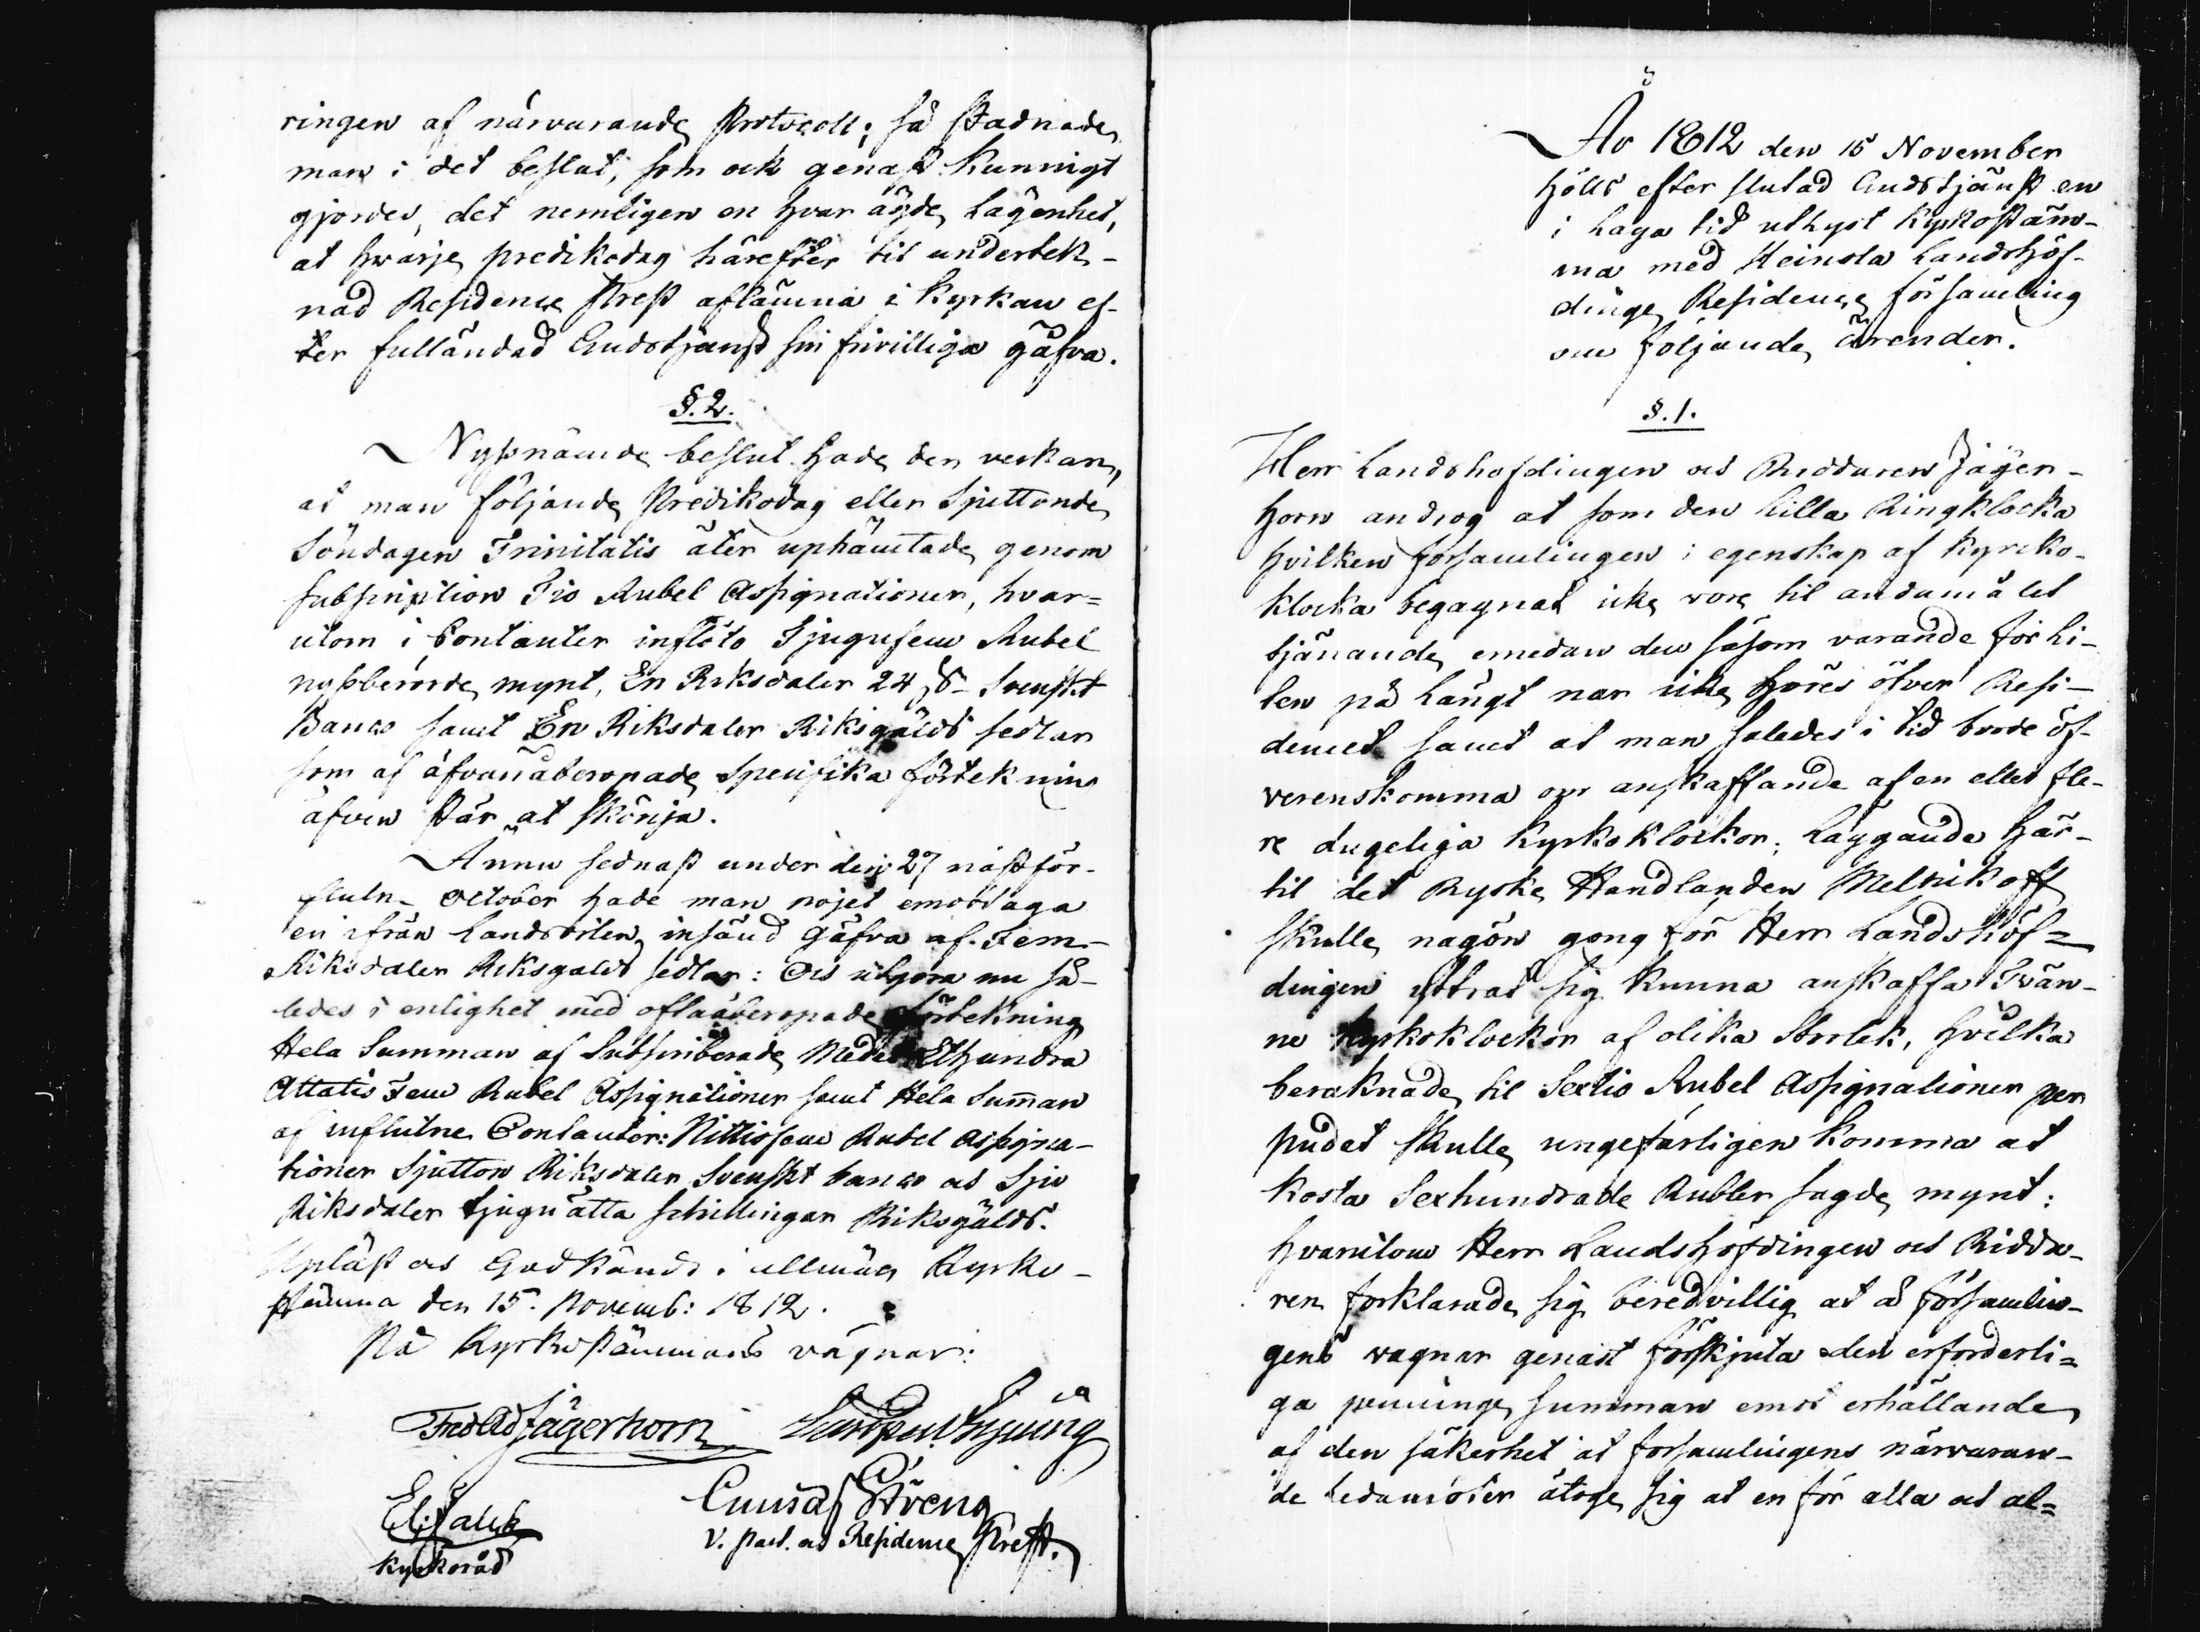 ringen af närvarande Protocoll; så stadnade
man i det beslut, som ock genast kunnigt
gjordes, det nemligen en hvar ägde lägenhet,
at hwarje predikodag härefter til undertek-
nad Residence Prest aflämna i Kyrkan ef-
ter fulländad Gudstjenst sin frivilliga gåfva.
§. 2.
Nyssnämde beslut hade den verkan,
at man följande Predikodag eller Sjuttonde
Söndagen Trinitatis åter uphämtade genom
subscription Tio Rubel Assignationer, hvar=
utom i Contanter inflöto Tjugufem Rubel
nyssberörde mynt, En Riksdaler 24 s- Svenskt
Banco samt En Riksdaler Riksgälds sedlar
som af åfvanåberopade specifika förtekning
äfven står at skönja.
Ännu sednast under den 27 nästför-
flutn- October hade man nöjet emottaga
en ifrån Landsorten insänd gåfva af Fem-
Riksdaler Riksgälds sedlar: Och utgöra nu så-
ledes i enlighet med oftaåberopade förtekning
Hela Summan af Subscriberade Medel Etthundra
Attatis Fem Rubel Assignationer samt Hela Summan
af influtne Contanter: Nittiofem Rubel Assigna-
tioner Sjutton Riksdaler Svenskt banco och Sju
Riksdaler tjugu åtta schillingar Riksgälds.
Upläst och Godkändt i allmän Kyrko-
stämma den 15. Novemb: 1812.
På Kyrkostämmans vägnar:
Fred Ad Jägerhorn
Gustaf Ströeng
El. Falck
V. Past. och Residence Prest.
Kyrkoråd
År 1812 den 15 November
hölls efter slutad Gudstjänst en
i laga tid utlyst Kyrkostäm-
ma med Heinola Landshöf-
dinge Residence församling
om följande ärender.
§. 1.
Herr Landshöfdingen och Riddaren Jäger-
horn androg at som den lilla Ringklocka
hvilken församlingen i egenskap af Kyrcko-
klocka begagnat icke vore til ändamålet
tjänande, emedan den såsom varande för li-
ten på långt när icke höres öfver Resi-
dencet samt at man således i tid borde öf-
verenskomma om anskaffande af en eller fle-
re dugeliga Kyrkoklockor; läggande här-
til det Ryske Handlanden Melnikoff
skulle någon gong för Herr Landshöf=
dingen yttrat sig kunna anskaffa Tvän-
ne Kyrkoklockor af olika Storlek, hvilka
beräknade til Sextio Rubel Assignationer per
pudet skulle ungefärligen komma at
kosta Sexhundrade Rubler sagde mynt:
hvarutom Herr Landshöfdingen och Ridda-
ren förklarade sig beredvillig at å församlin-
gens vägnar genast förskjuta den erforderli=
ga penninge summan emot erhållande
af den säkerhet at församlingens närvaran-
de ledamöter åtoge sig at en för alla och al=